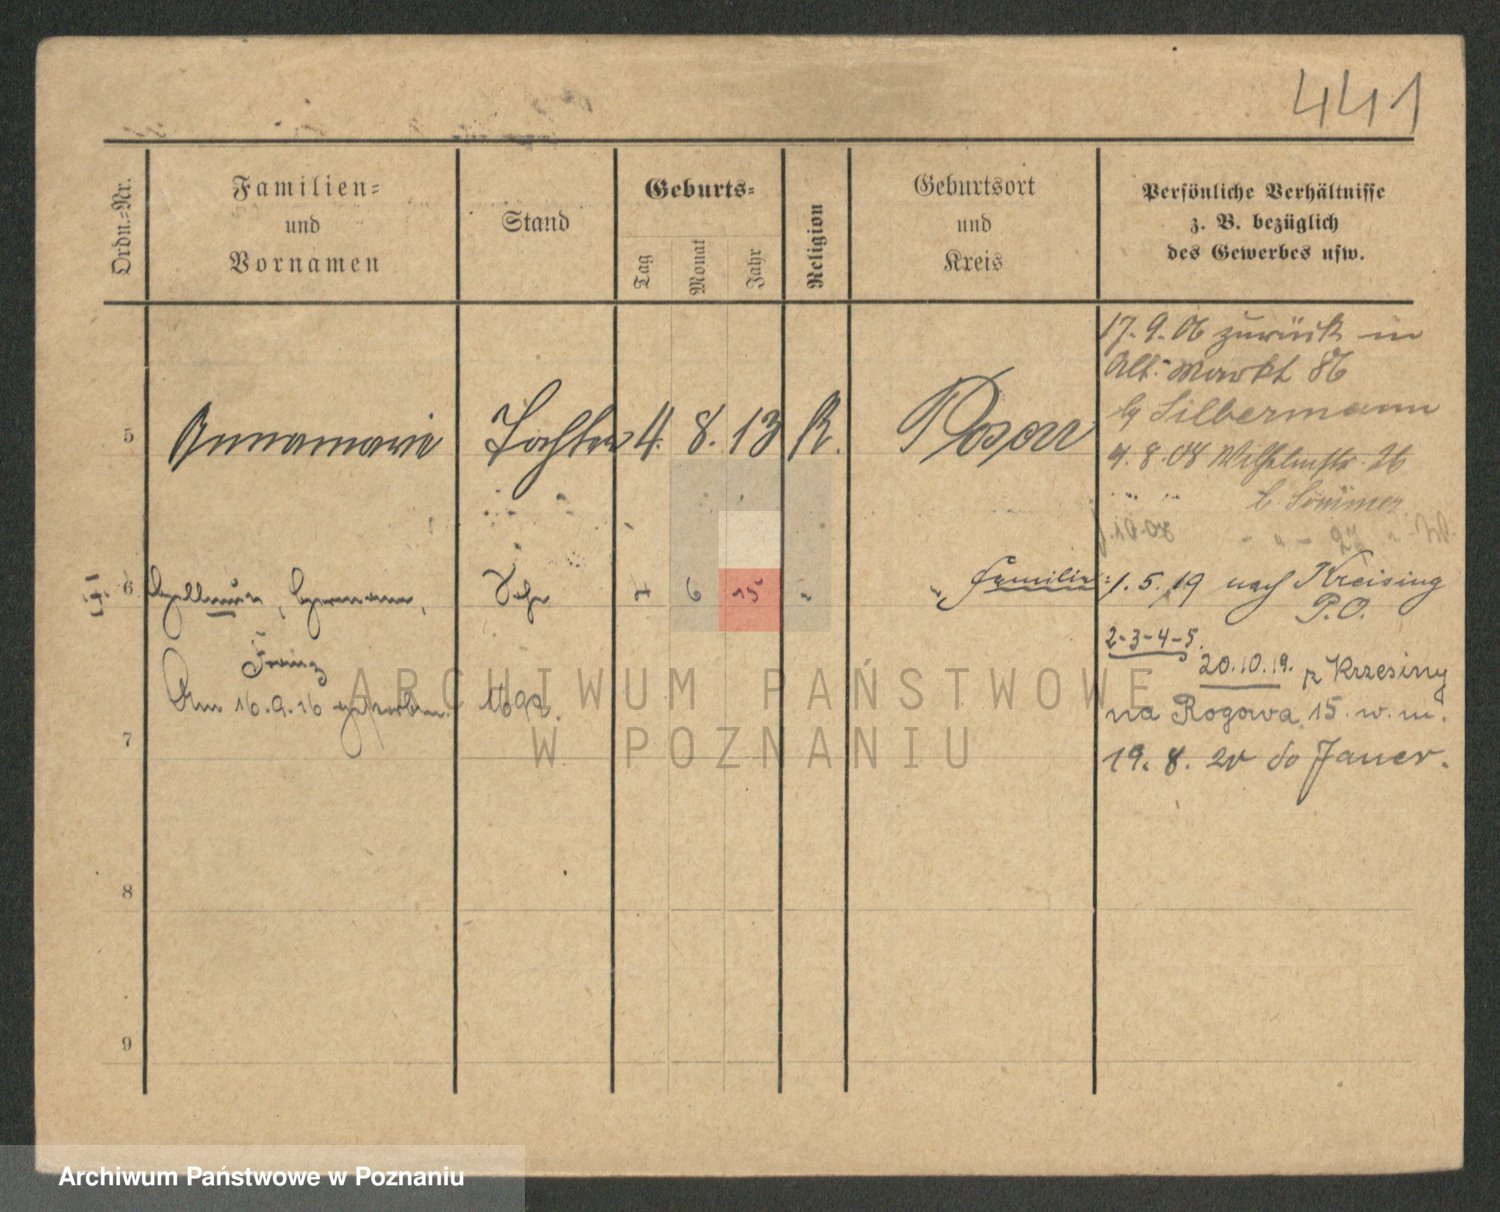 441
Ordn.-Nr.
Familien-
und
Vornamen
Stand
Geburts-
Tag
Monat
Jahr
Religion
Geburtsort
und
Kreis
Persönliche Verhältnisse
z. B. bezüglich
des Gewerbes usw.
5 Annamarie Tochter 4. 8. 13 K. Posen
6 Hermann,
Franz 6 15 "
Am 16.9.16 gestorben.
7
8
9
17.9.06 zurück in
Alt. Markt 86
b Silbermann
4.8.08 Wilhelmstr. 26
b Sommer
.10.08 " 27
Familie: 1.5.19 nach Kreising
P.O.
2-3-4-5.
20.10.19. z Krzesiny
na Rogowa 15. w. m.
19. 8. 20 do Jauer.
ARCHIWUM PAŃSTWOWE
W POZNANIU
Archiwum Państwowe w Poznaniu